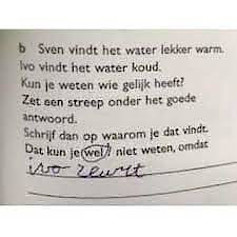 b Sven vindt het water lekker warm.
Ivo vindt het water koud.
Kun je weten wie gelijk heeft?
Zet een streep onder het goede
antwoord.
Schrijf dan op waarom je dat vindt.
Dat kun je wel / niet weten, omdat
ivo